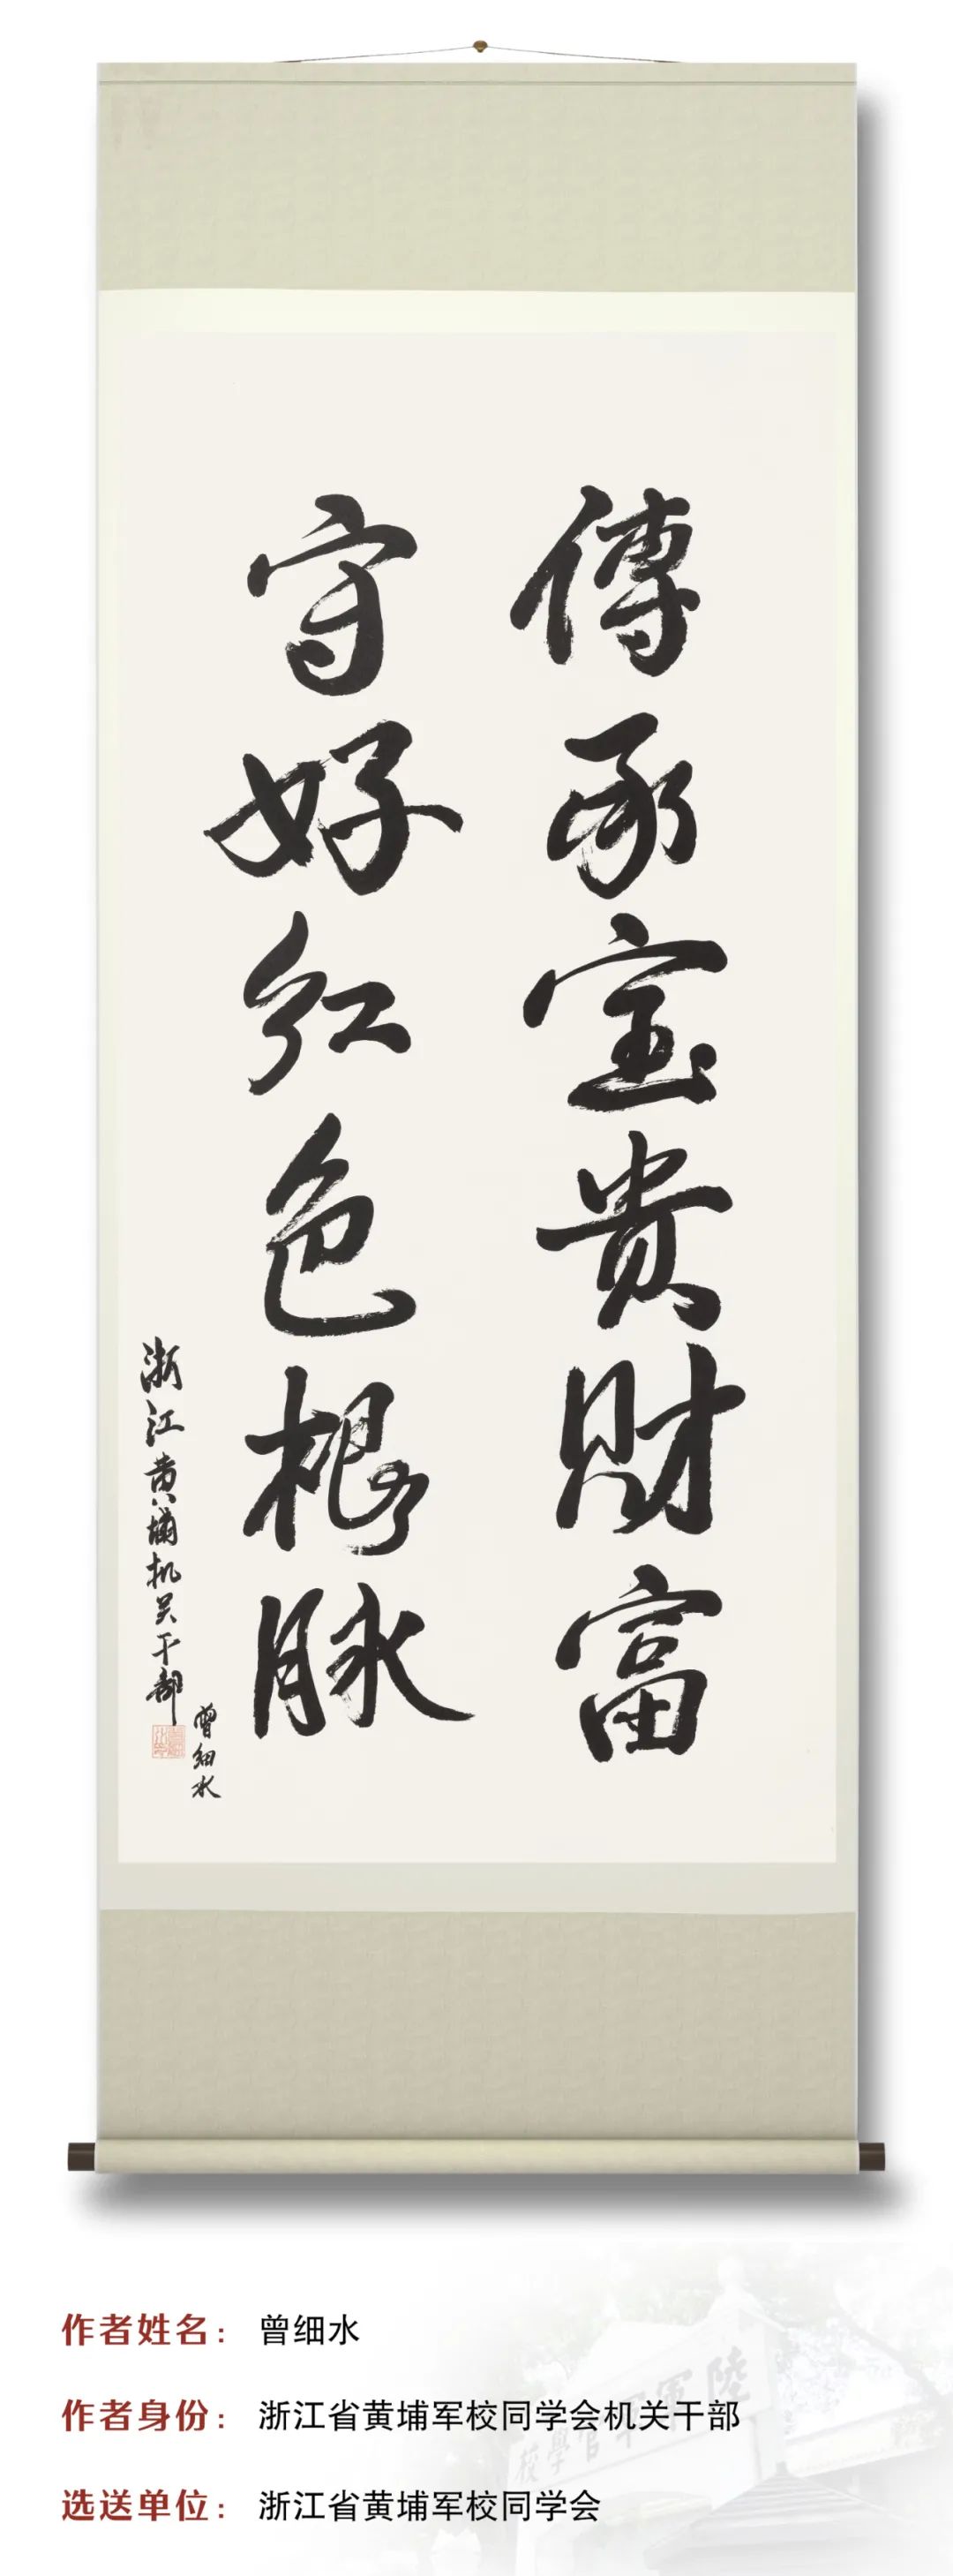 傳承宝贵财富
守好红色根脉
浙江黄埔机关干部
曾细水
作者姓名：曾细水
作者身份：浙江省黄埔军校同学会机关干部
选送单位：浙江省黄埔军校同学会
陸軍軍官學校